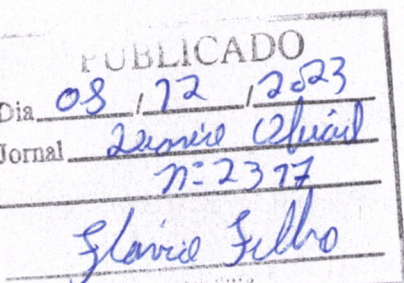 PUBLICADO
Dia 08 / 12 / 2023
Jornal Diario Oficial
nº 2317
Flavio Filho